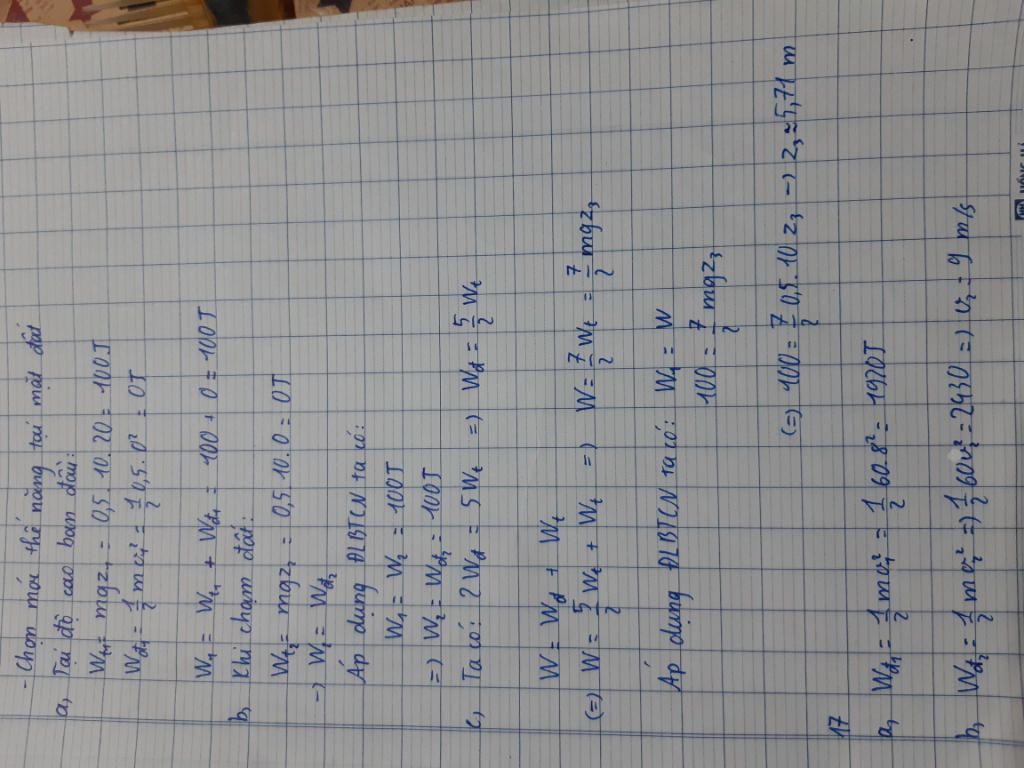 - Chọn mốc thế năng tại mặt đất
a, Tại độ cao ban đầu:
Wt1 = mgz1 = 0,5.10.20 = 100J
Wđ1 = 1/2 mv1² = 1/2 0,5.0² = 0J
W1 = Wt1 + Wđ1 = 100 + 0 = 100J
b, Khi chạm đất:
Wt2 = mgz2 = 0,5.10.0 = 0J
→ W2 = Wđ2
Áp dụng ĐLBTCN ta có:
W1 = W2 = 100J
=) W2 = Wđ2 = 100J
c, Ta có: 2Wđ = 5Wt =) Wđ = 5/2 Wt
W = Wđ + Wt
(=) W = 5/2 Wt + Wt =) W = 7/2 Wt = 7/2 mgz3
Áp dụng ĐLBTCN ta có: W1 = W
100 = 7/2 mgz3
(=) 100 = 7/2 0,5.10.z3 → z3 ≈ 5,71 m
17
a, Wđ1 = 1/2 mv1² = 1/2 60.8² = 1920J
b, Wđ2 = 1/2 mv2² =) 1/2 60v2² = 2430 =) v2 = 9 m/s